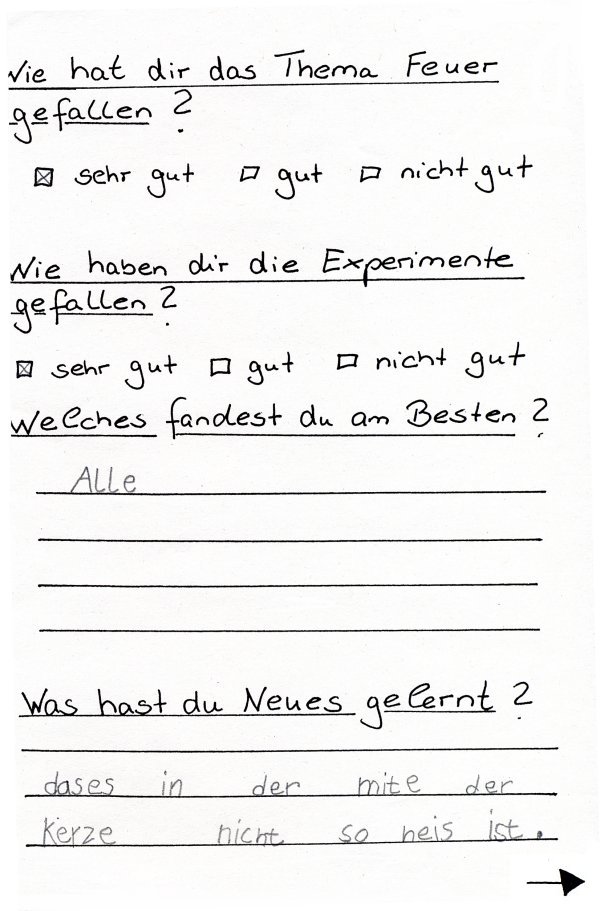 Wie hat dir das Thema Feuer
gefallen?
☒ sehr gut ☐ gut ☐ nicht gut
Wie haben dir die Experimente
gefallen?
☒ sehr gut ☐ gut ☐ nicht gut
Welches fandest du am Besten?
Alle
Was hast du Neues gelernt?
dases in der mite der
Kerze nicht so heis ist.